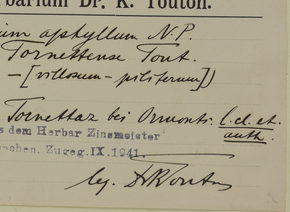 rbarium Dr. K. Touton.
ium aphyllum N.P.
Tornettense Tout.
–[villosum – piliferum])
Tornettaz bei Ormonts. l.d. et.
auth.
s dem Herbar Zinsmeister
nchen. Zugeg. IX. 1941
leg. Dr Touton